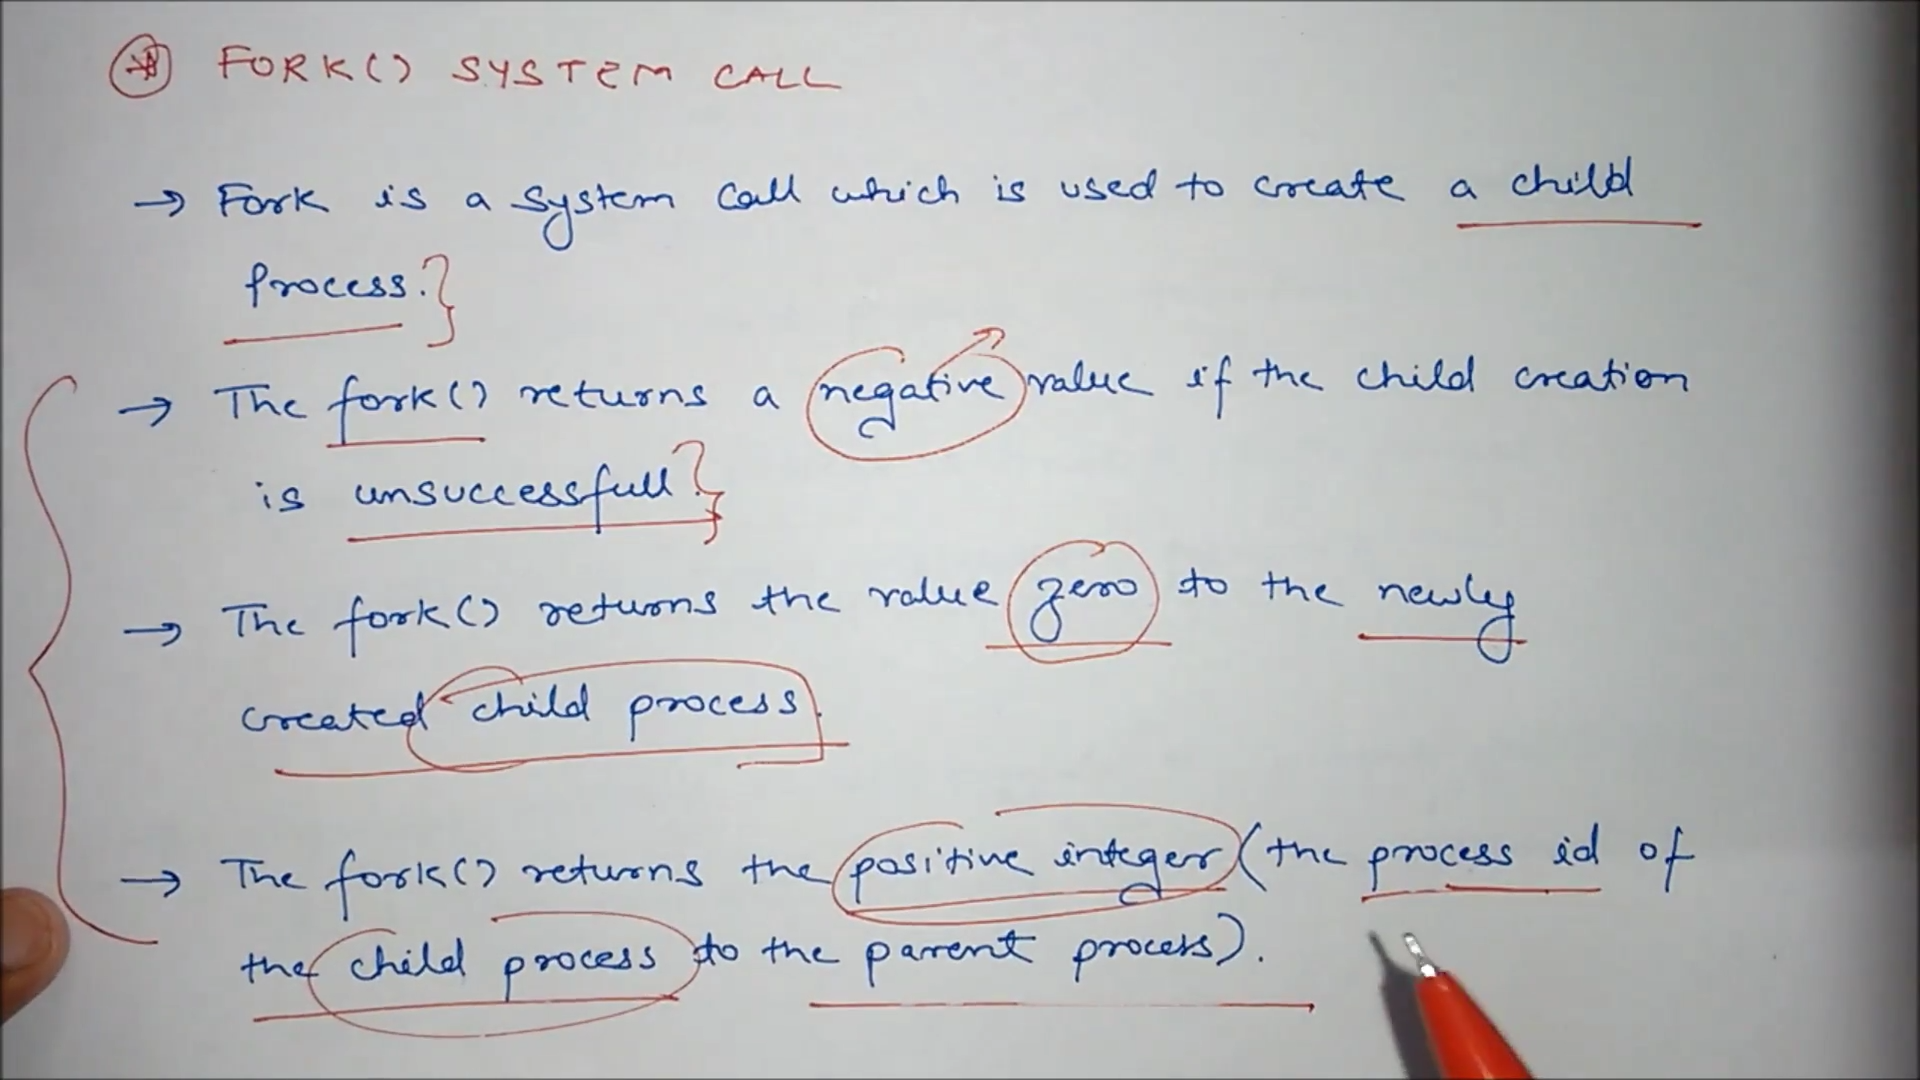 FORK() SYSTEM CALL
→ Fork is a system call which is used to create a child
process.
→ The fork() returns a negative value if the child creation
is unsuccessfull.
→ The fork() returns the value zero to the newly
created child process.
→ The fork() returns the positive integer (the process id of
the child process to the parent process).